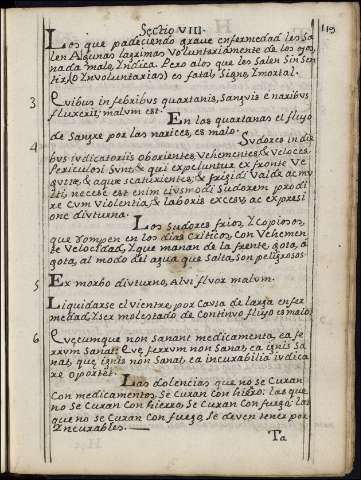 Sectio VIII.
113
Los que padeciendo graue enfermedad les sa
len Algunas lagrimas Voluntariamente de los ojos,
nada malo, Yndica. Pero alos que les Salen Sin Sen
tir, (o Ynvoluntarias) es fatal, Signo, Ymortal.
3 Quibus in febribus quartanis, Sanguis e naribus
fluxerit, malum est.
En las quartanas el fluyo
de Sangre por las narices, es malo.
4 Sudores in die
bus iudicatorijs oborientes, Vehementes, & Veloces,
Periculosi Sunt, & qui expelluntur ex fronte Ve
guttæ, & aquæ scaturientes; & frigidi Valde ac mu
lti, necesse est enim eiusmodi Sudorem prodi
re cum Violentia, & laboris excessu, ac expresi
one diuturna.
Los Sudores frios, Y Copiosos,
que rompen en los dias Criticos, con Vehemen
te Velocidad, Y que manan de la frente, gota, á
gota, al modo del agua que Salta, son peligrosos.
5 Ex morbo diuturno, Alvi fluor malum.
Liquidarse el vientre, por Causa de larga enfer
medad, Y ser molestado de Continuo fluyo es malo.
6 Quęcumque non sanant medicamenta, ea fe
rrum Sanat: Quę ferrum non Sanat, ea ignis Sa
nat, quę ignis non Sanat, ea incurabilia iudica
re oportet.
Las dolencias que no Se Curan
Con medicamentos, Se Curan con hierro: las que
no Se Curan Con hierro, Se Curan Con fuego: las
que no Se Curan Con fuego, Se deven tener por
Yncurables.
Ta